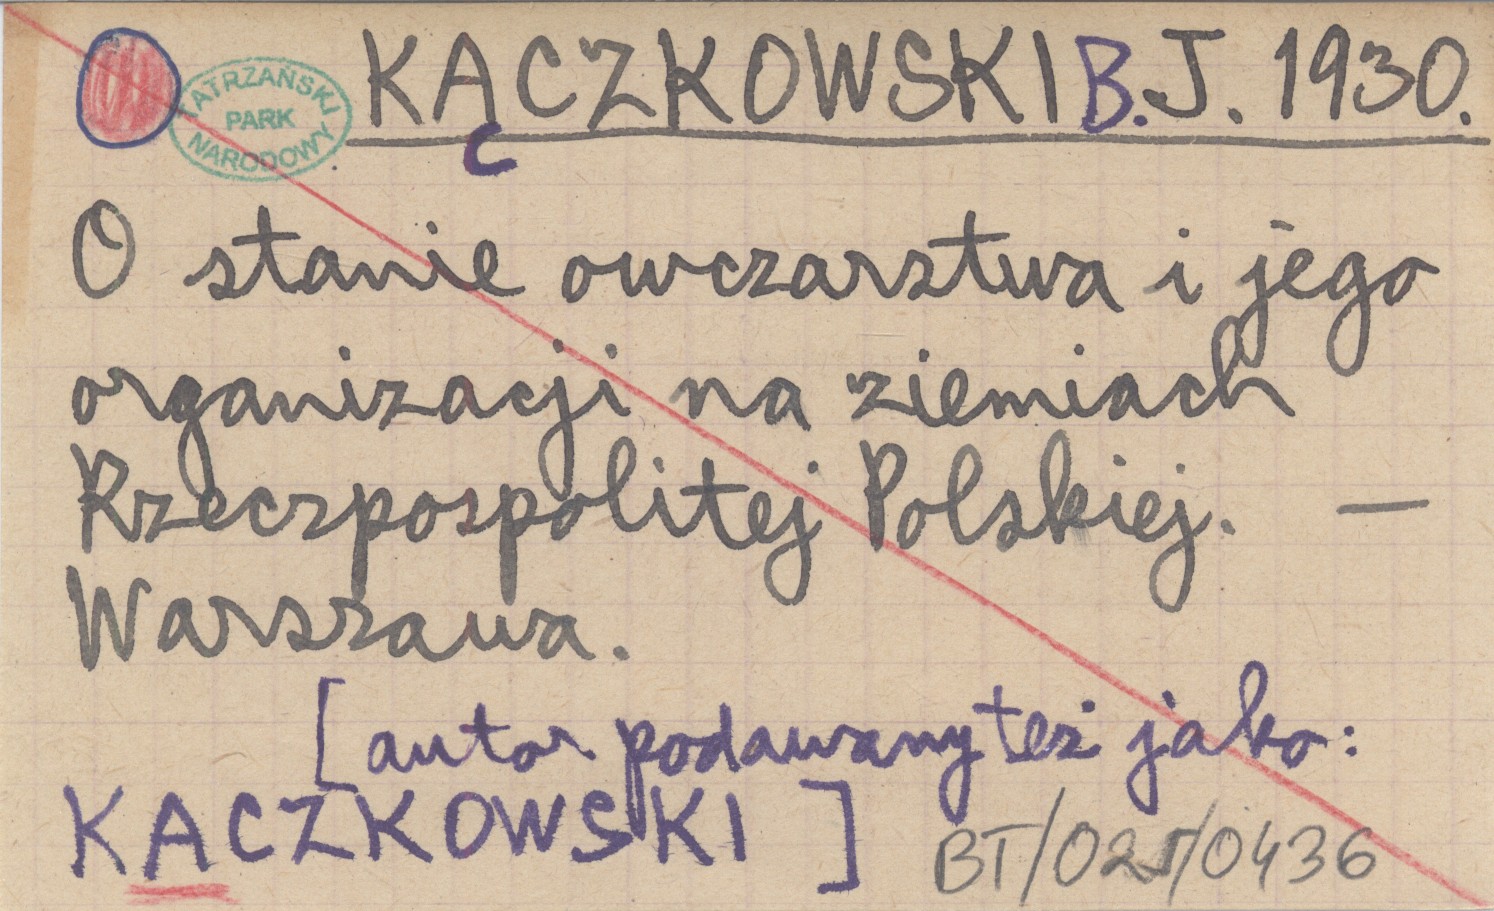 TATRZAŃSKI
PARK
NARODOWY
KĄCZKOWSKI B.J. 1930.
O stanie owczarstwa i jego
organizacji na ziemiach
Rzeczpospolitej Polskiej. —
Warszawa.
[autor podawany też jako:
KACZKOWSKI]
BT/025/0436